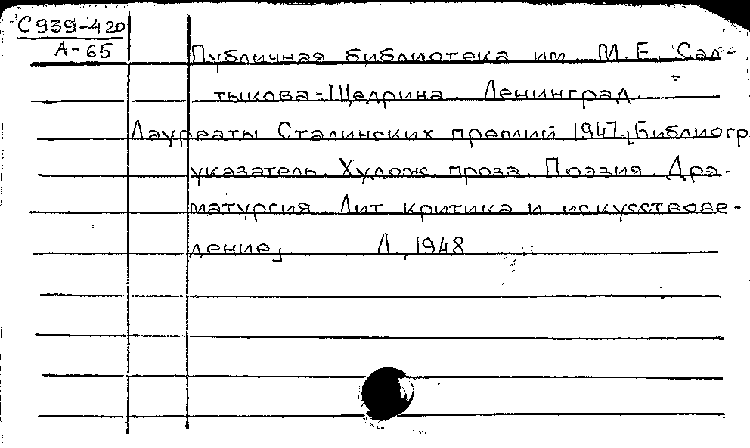 С939-420
А-65
Публичная библиотека им. М.Е. Сал-
тыкова-Щедрина. Ленинград.
Лауреаты Сталинских премий 1947. [Библиогр.
указатель. Худож. проза. Поэзия. Дра-
матургия. Лит. критика и искусствове-
дение] Л., 1948